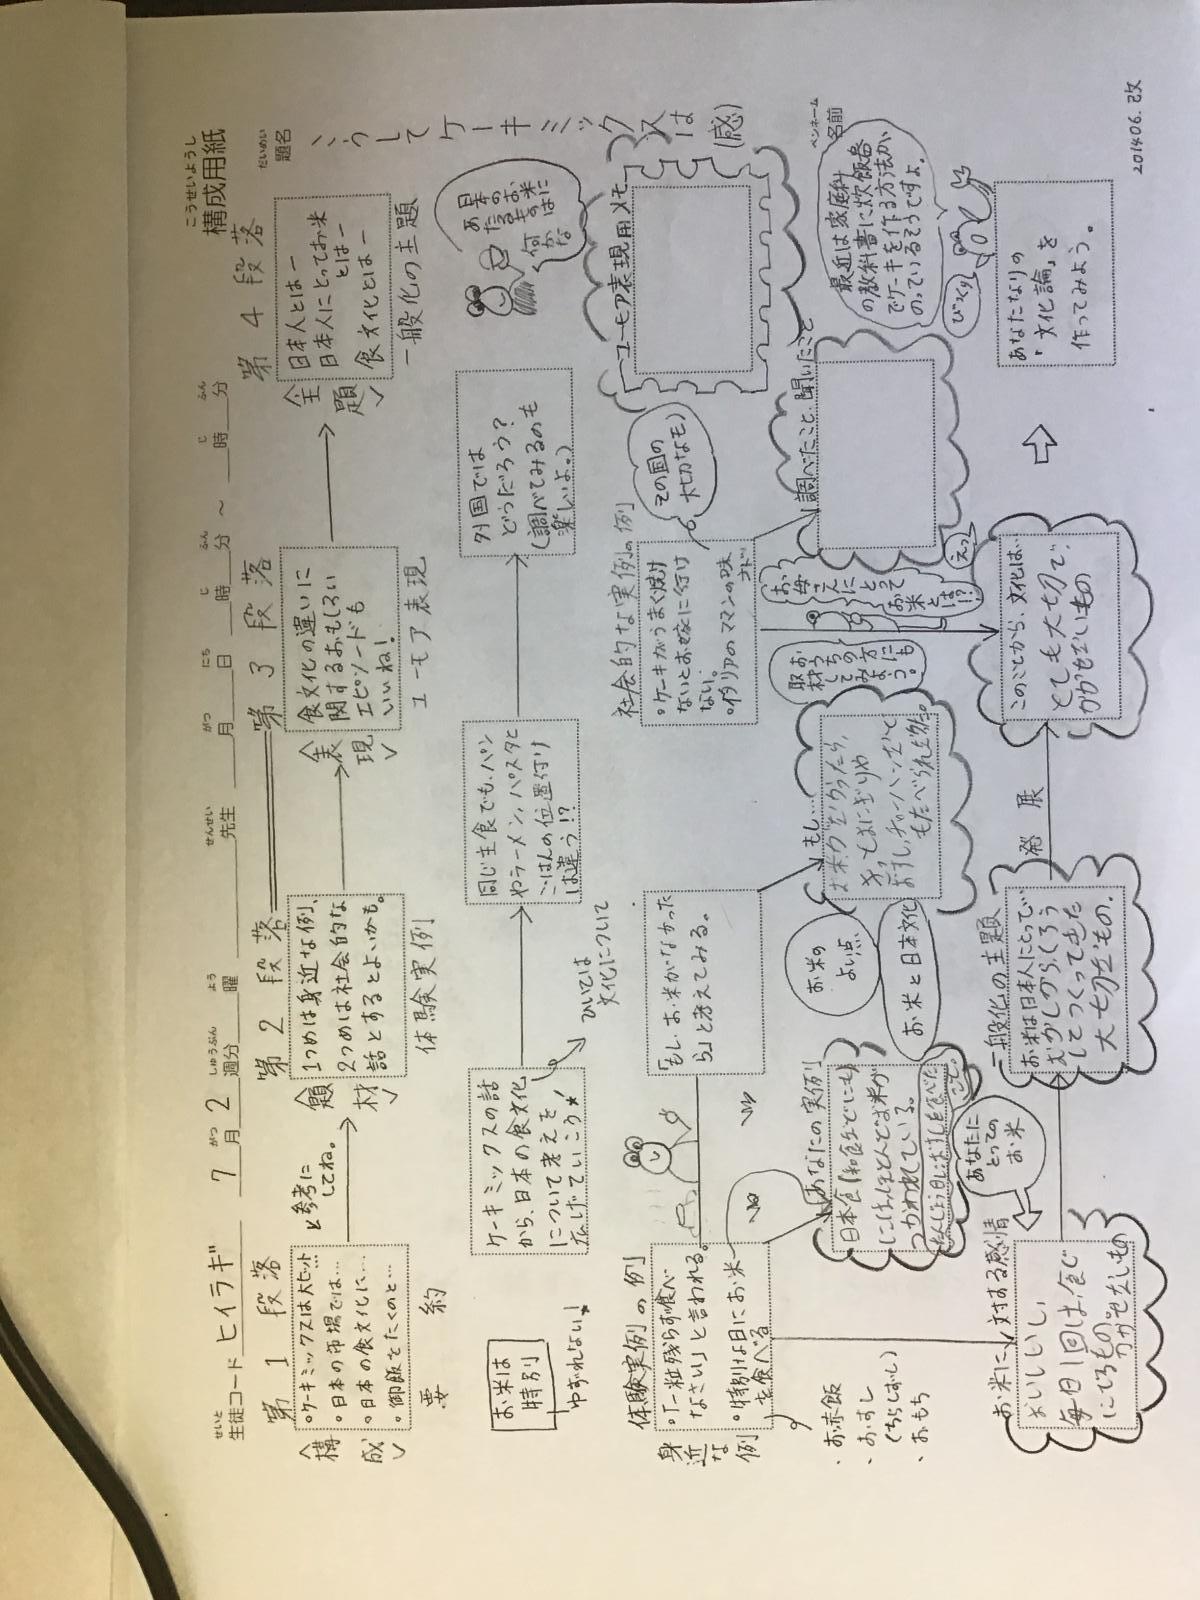 構成用紙
こうせいようし
生徒コード ヒイラギ 7月2週分 曜 先生 月 日 時 分 ～ 時 分
せいと がつ しゅうぶん よう せんせい がつ にち じ ふん じ ふん
題名
だいめい
こうしてケーキミックスは(感)
ペンネーム
名前
第1段落
〈構成〉
・ケーキミックスは大ヒット…
・日本の市場では…
・日本の食文化に…
・御飯をたくのと…
要約
と参考にしてね。
第2段落
〈題材〉
1つめは身近な例、
2つめは社会的な
話とするとよいかも。
体験実例
第3段落
〈表現〉
食文化の違いに
関するおもしろい
エピソードも
いいね!
ユーモア表現
第4段落
〈主題〉
日本人とは―
日本人にとってお米
とは―
食文化とは―
一般化の主題
お米は
特別
ゆずれない!
ケーキミックスの話
から、日本の食文化
について考えを
広げていこう
ひいては
文化について
同じ主食でも、パン
やラーメン、パスタと
ごはんの位置付け
は違う!?
外国では
どうだろう?
(調べてみるのも
楽しいよ。)
日本のお米は
あなたの何かな
体験実例の例
身近な例
・「一粒残らず食べ
なさい」と言われる。
・特別な日にお米
を食べる
・お赤飯
・おすし
(ちらしずし)
・おもち
「もし、お米がなかった
ら」と考えてみる。
社会的な実例の例
・ケーキがうまく焼け
ないとお嫁に行け
ない。
・イタリアのマンマの味
など
その国の
大切なも
ユーモア表現用メモ
あなたの実例
日本食(和食など)にも
にはほとんどお米が
つかわれている。
たんじょう日におすしを食べた
こと。
お米の
よい点
お米と日本文化
もし…
お米がなかったら、
きっとおにぎりや
おすし、チャーハンなど
もたべられな
お うちの方にも
取材してみよう。
お母さんにとって
お米とは!?
えっ
調べたこと、聞いたこと
最近は家庭科
の教科書に炊飯器
でケーキを作る方法が
のっているそうですよ。
びっくり
お米に対する感情
おいしいし、
毎日1回は食
にでるもの。
かかせないもの
あなたに
とっての
お米
一般化の主題
お米は日本人にとって
むかしから、くろう
してつくってきた
大切なもの。
発展
このことから、文化は、
とても大切で、
かかせないもの
あなたなりの
「文化論」を
作ってみよう。
201406.改